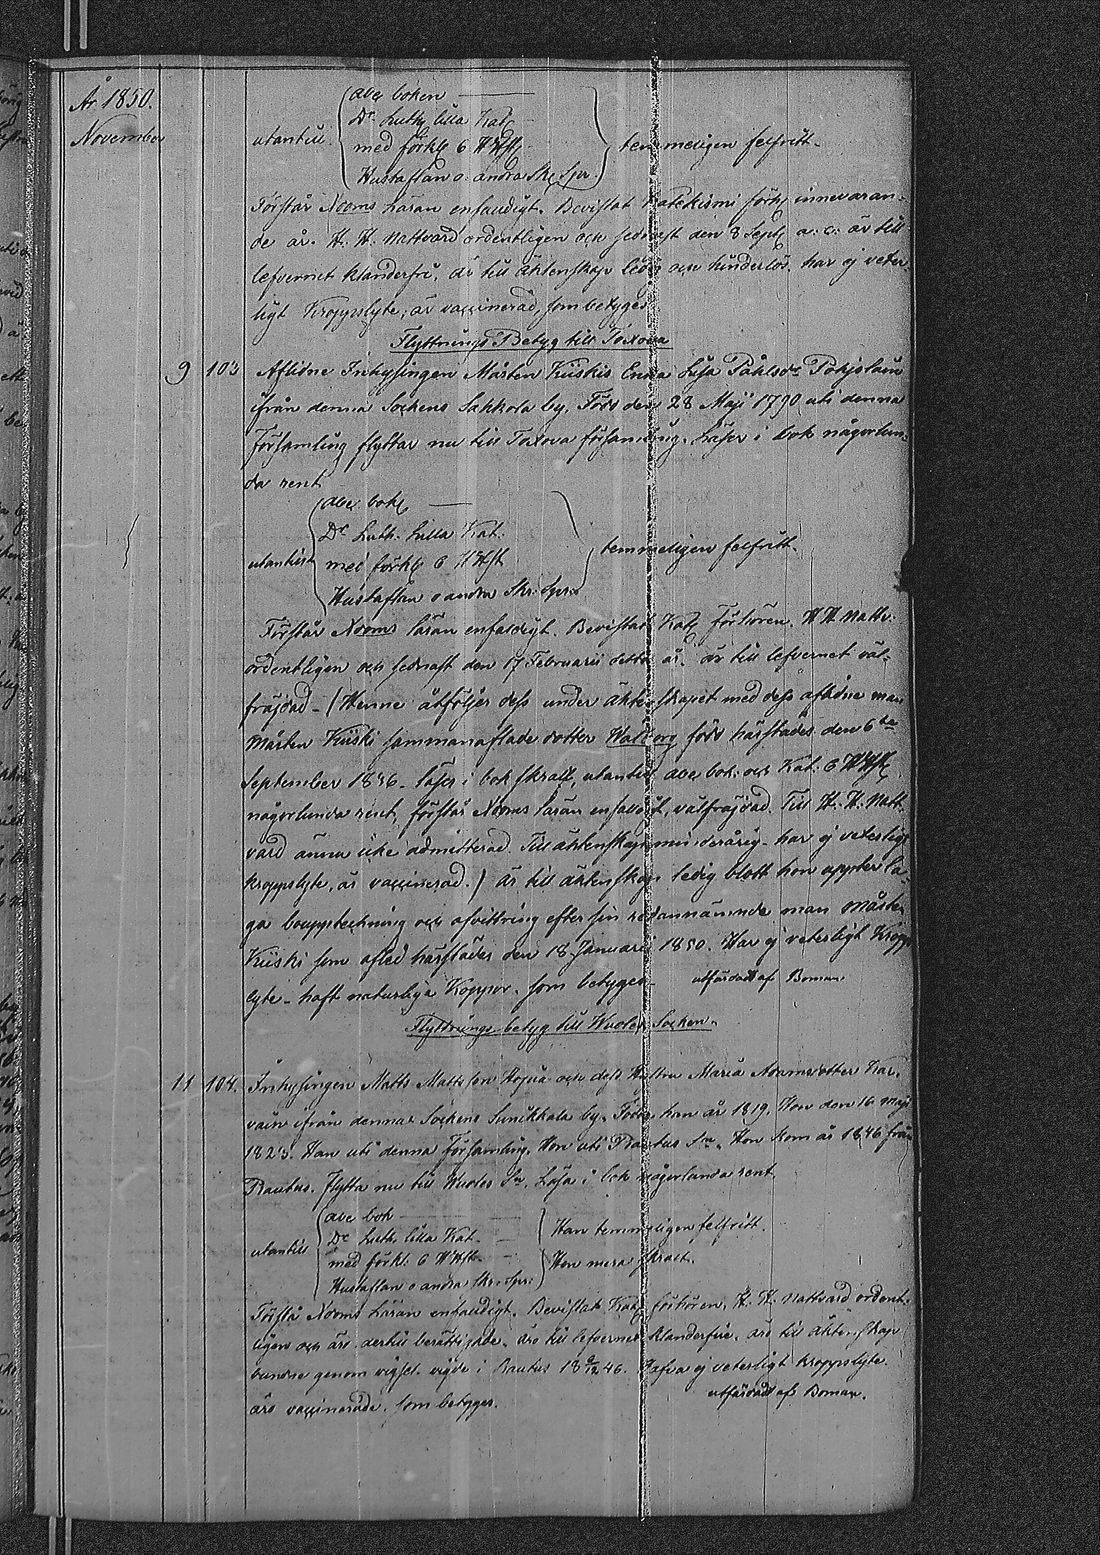 År 1850.
November
abc boken
Dr Luth. lilla Kat.
utantill med förkl. 6 HHst. temmeligen felfritt.
Hustaflan o. andra Skr. Spr.
Förstår Nooms läran enfaldigt. Bevistat Katekismi förh. innevaran-
de år. H. H. Nattvard ordentligen och sednast den 8 Sept. a. c. är till
lefvernet klanderfri, är till äktenskap ledig och hinderlös, har ej veter-
ligt Kroppslyte, är vaccinerad, som betyges
Flyttnings Betyg till Toxova
9 103 Aflidne Inhysingen Mårten Kiiskis Enka Lisa Påhlsdr Pohjolain
ifrån denna Sockens Sakkola by. Född den 28 Maji 1790 uti denna
församling flyttar nu till Toxova församling. Läser i bok någorlun-
da rent
abc bok
Dr Luth. Lilla Kat.
utantill med förkl. 6 HHst. temmeligen felfritt.
Hustaflan o andra Skr. Spr.
Förstår Nooms läran enfaldigt. Bevistat Kat. Förhören. H H Nattv.
ordentligen och sednast den 17 Februarii detta år. är till lefvernet väl-
fräjdad - (Henne åtföljer dess under äktenskapet med dess aflidne man
Mårten Kiiski sammanaflade dotter Walborg född härstädes den 6te
September 1836. läser i bok skralt, utantill abc bok och Kat. 6 HHst.
någorlunda rent, förstår Nooms läran enfaldigt, välfräjdad. Till H. H. Natt-
vard ännu icke admitterad. Till äktenskap minderårig. har ej veterligt
kroppslyte, är vaccinerad.) är till äktenskap ledig blott hon uppter la-
ga bouppteckning och afvittring efter sin redannämnde man Mårten
Kiiski som afled härstädes den 18 Januarii 1850. Har ej veterligt Kropps
lyte - haft naturliga Koppor. som betygas utfärdadt af Boman
Flyttnings betyg till Wuoles Socken.
11 104. Inhysingen Matts Mattsson Hojua och dess Hustru Maria Adamsdotter Kar-
vain ifrån dennas Sockens Sunikkala by. Född han år 1819. Hon den 16 Maji
1825. Han uti denna församling. Hon uti Rautus Sn. Hon kom år 1846 från
Rautus. Flytta nu till Wuoles Sn. Läsa i bok någorlunda rent.
abc bok
Dr Luth. lilla Kat. Han temmeligen felfritt.
utantill med förkl. 6 HHst. Hon mera skralt.
Hustaflan o andra Skr. Spr.
Förstå Nooms läran enfaldigt. Bevistat Kat. förhören, H. H. Nattvard ordent-
ligen och äro dertill berättigade. äro till lefvernet klanderfrie. äro till äktenskap
bundne genom vigsel. vigde i Rautus 18 6/12 46. Hafva ej veterligt kroppslyte
äro vaccinerade. som betyges. utfärdadt af Boman.